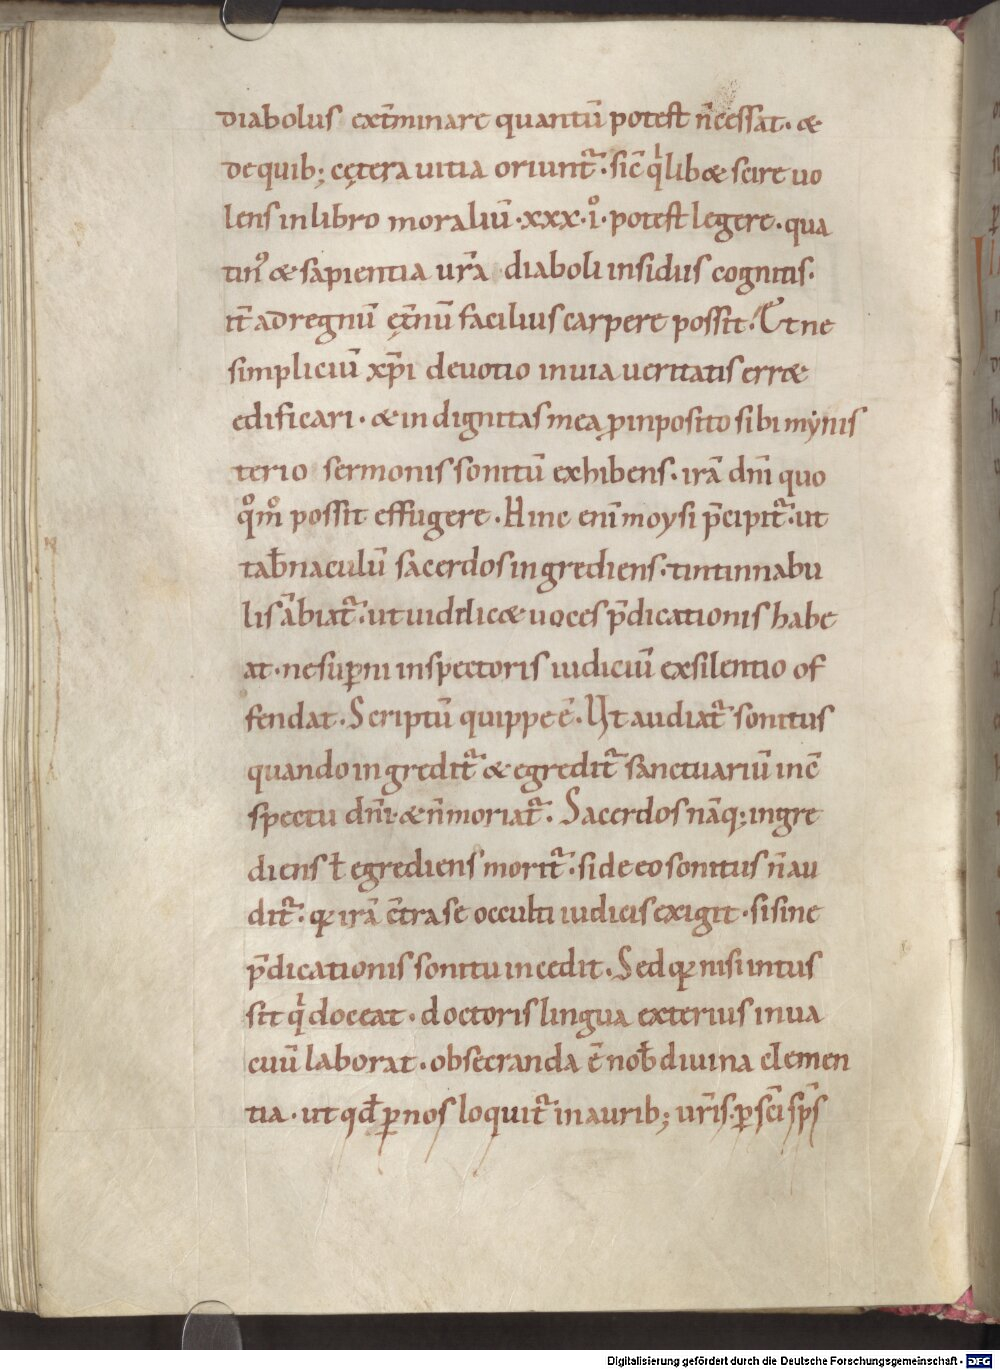 diabolus ext̄minare quantū potest n̄ cessat · &
de quib; cętera uitia oriunt᷑ · sic̄ qͥlib& scire uo
lens in libro moraliū · xxx · iͦ · potest legere · qua
tinꝰ & sapientia ur̄a diaboli insidiis cognitis ·
it̄ ad regnū ęt̄nū facilius carpere possit · Et ne
simpliciū xp̄i deuotio in uia ueritatis err&
edificari · & indignitas mea ꝓ inposito sibi mẏnis
terio sermonis sonitū exhibens · irā dn̄i quo
qͦmͦ possit effugere · Hinc eni͂ moysi p̄cipit᷑ · ut
tab̄naculū sacerdos ingrediens · tintinnabu
lis ābiat᷑ · ut uidelic& uoces p̄dicationis habe
at · ne suꝑni inspectoris iudiciū ex silentio of
fendat · Scriptū quippe ē · Ut audiat᷑ sonitus
quando ingredit᷑ & egredit᷑ sanctuariū in c̄
spectu dn̄i · & n̄ moriat᷑ · Sacerdos nāq; ingre
diens ł egrediens morit᷑ · si de eo sonitus n̄ au
dit᷑ · qꝛ irā c̄tra se occulti iudicis exigit · si sine
p̄dicationis sonitu incedit · Sed qꝛ nisi intus
sit qͥ doceat · doctoris lingua exterius in ua
cuū laborat · obsecranda ē nob̄ diuina clemen
tia · ut qd̄ ꝑ nos loquit᷑ in aurib; ur̄is · ꝑ sc̄i sp̄s
Digitalisierung gefördert durch die Deutsche Forschungsgemeinschaft - DFG